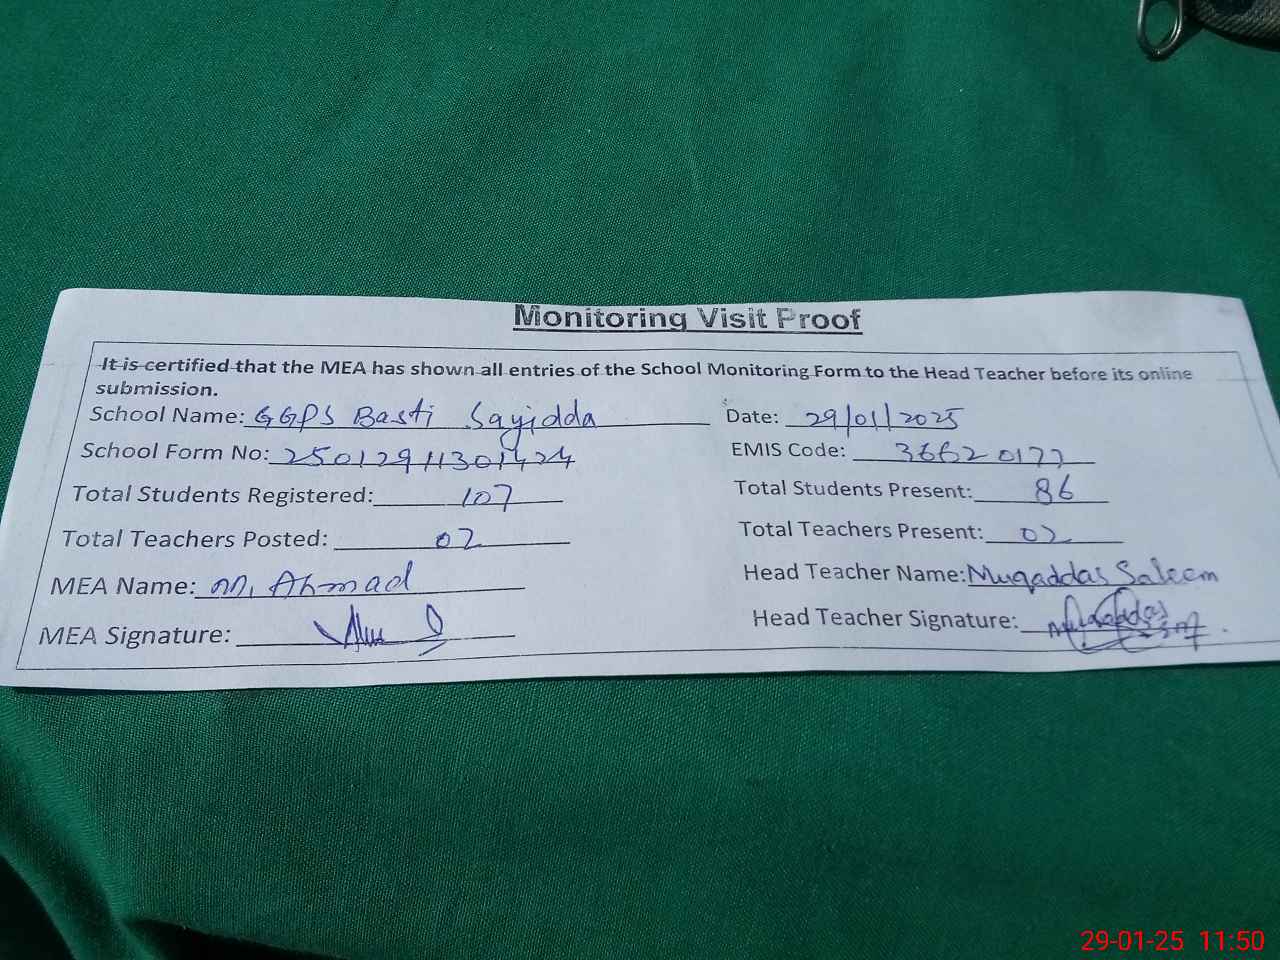 Monitoring Visit Proof
It is certified that the MEA has shown all entries of the School Monitoring Form to the Head Teacher before its online
submission.
School Name: GGPS Basti Sayidda Date: 29/01/2025
School Form No: 25012911301424 EMIS Code: 36620177
Total Students Registered: 107 Total Students Present: 86
Total Teachers Posted: 02 Total Teachers Present: 02
MEA Name: M. Ahmad Head Teacher Name: Muqaddas Saleem
MEA Signature: Head Teacher Signature:
29-01-25 11:50